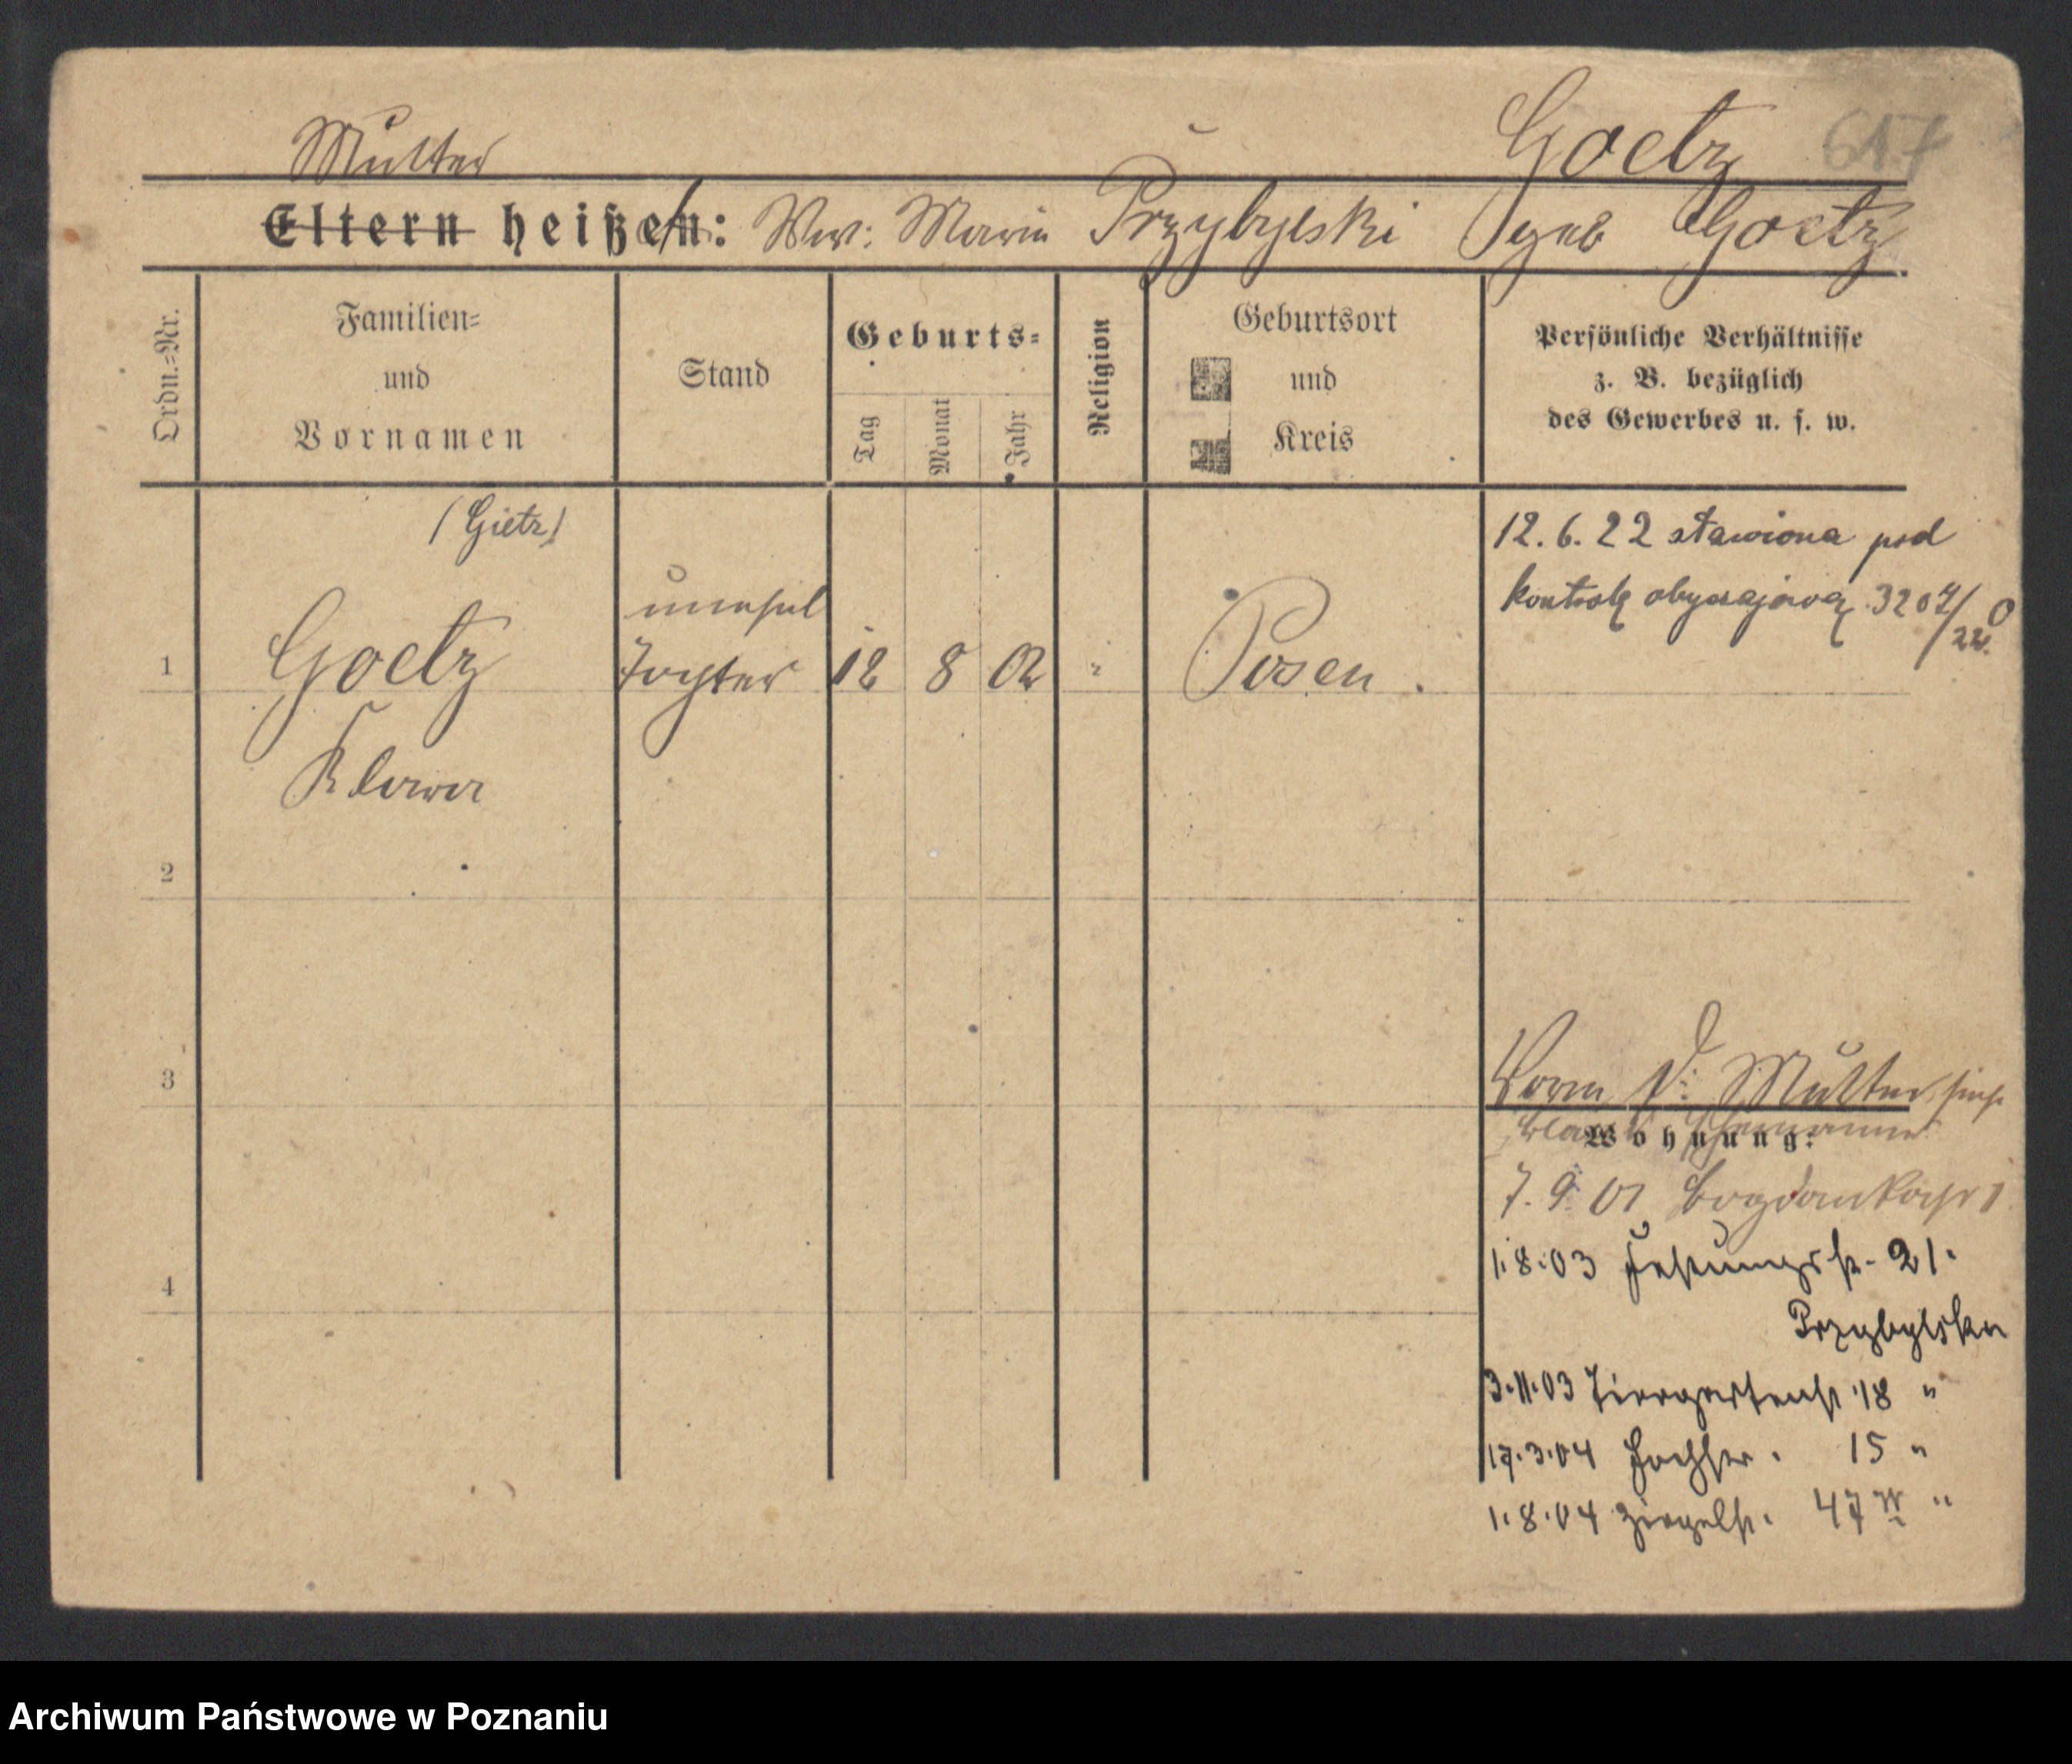 Goetz 617
Mutter
Eltern heißen: Ww: Maria Przybylski geb Goetz
Ordn.=Nr.
Familien=
und
Vornamen
Stand
Geburts=
Tag
Monat
Jahr
Religion
Geburtsort
und
Kreis
Persönliche Verhältnisse
z. B. bezüglich
des Gewerbes u. s. w.
(Gietz)
12.6.22 stawiona pod
kontrolę obyczajową 3204/22
unehel
1 Goetz Tochter 12 8 02 Posen.
Klara
2
3
Mutter siehe
Wohnung:
7.9.01 Bogdankastr 1
4
1.8.03 Festungsstr. 21.
Przybylska
3.11.03 Tiergartenst 18 "
17.3.04 15 "
1.8.04 Ziegelst. 47 "
Archiwum Państwowe w Poznaniu